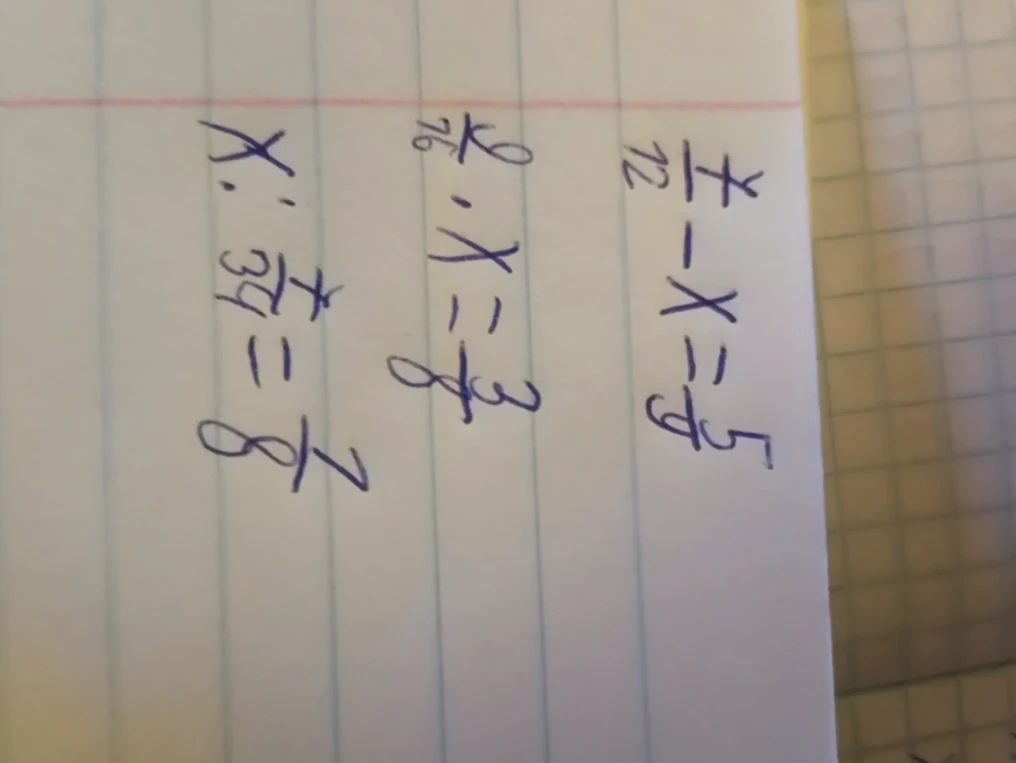 7/12 - x = 5/9
9/16 · x = 3/8
x : 7/34 = 1/8